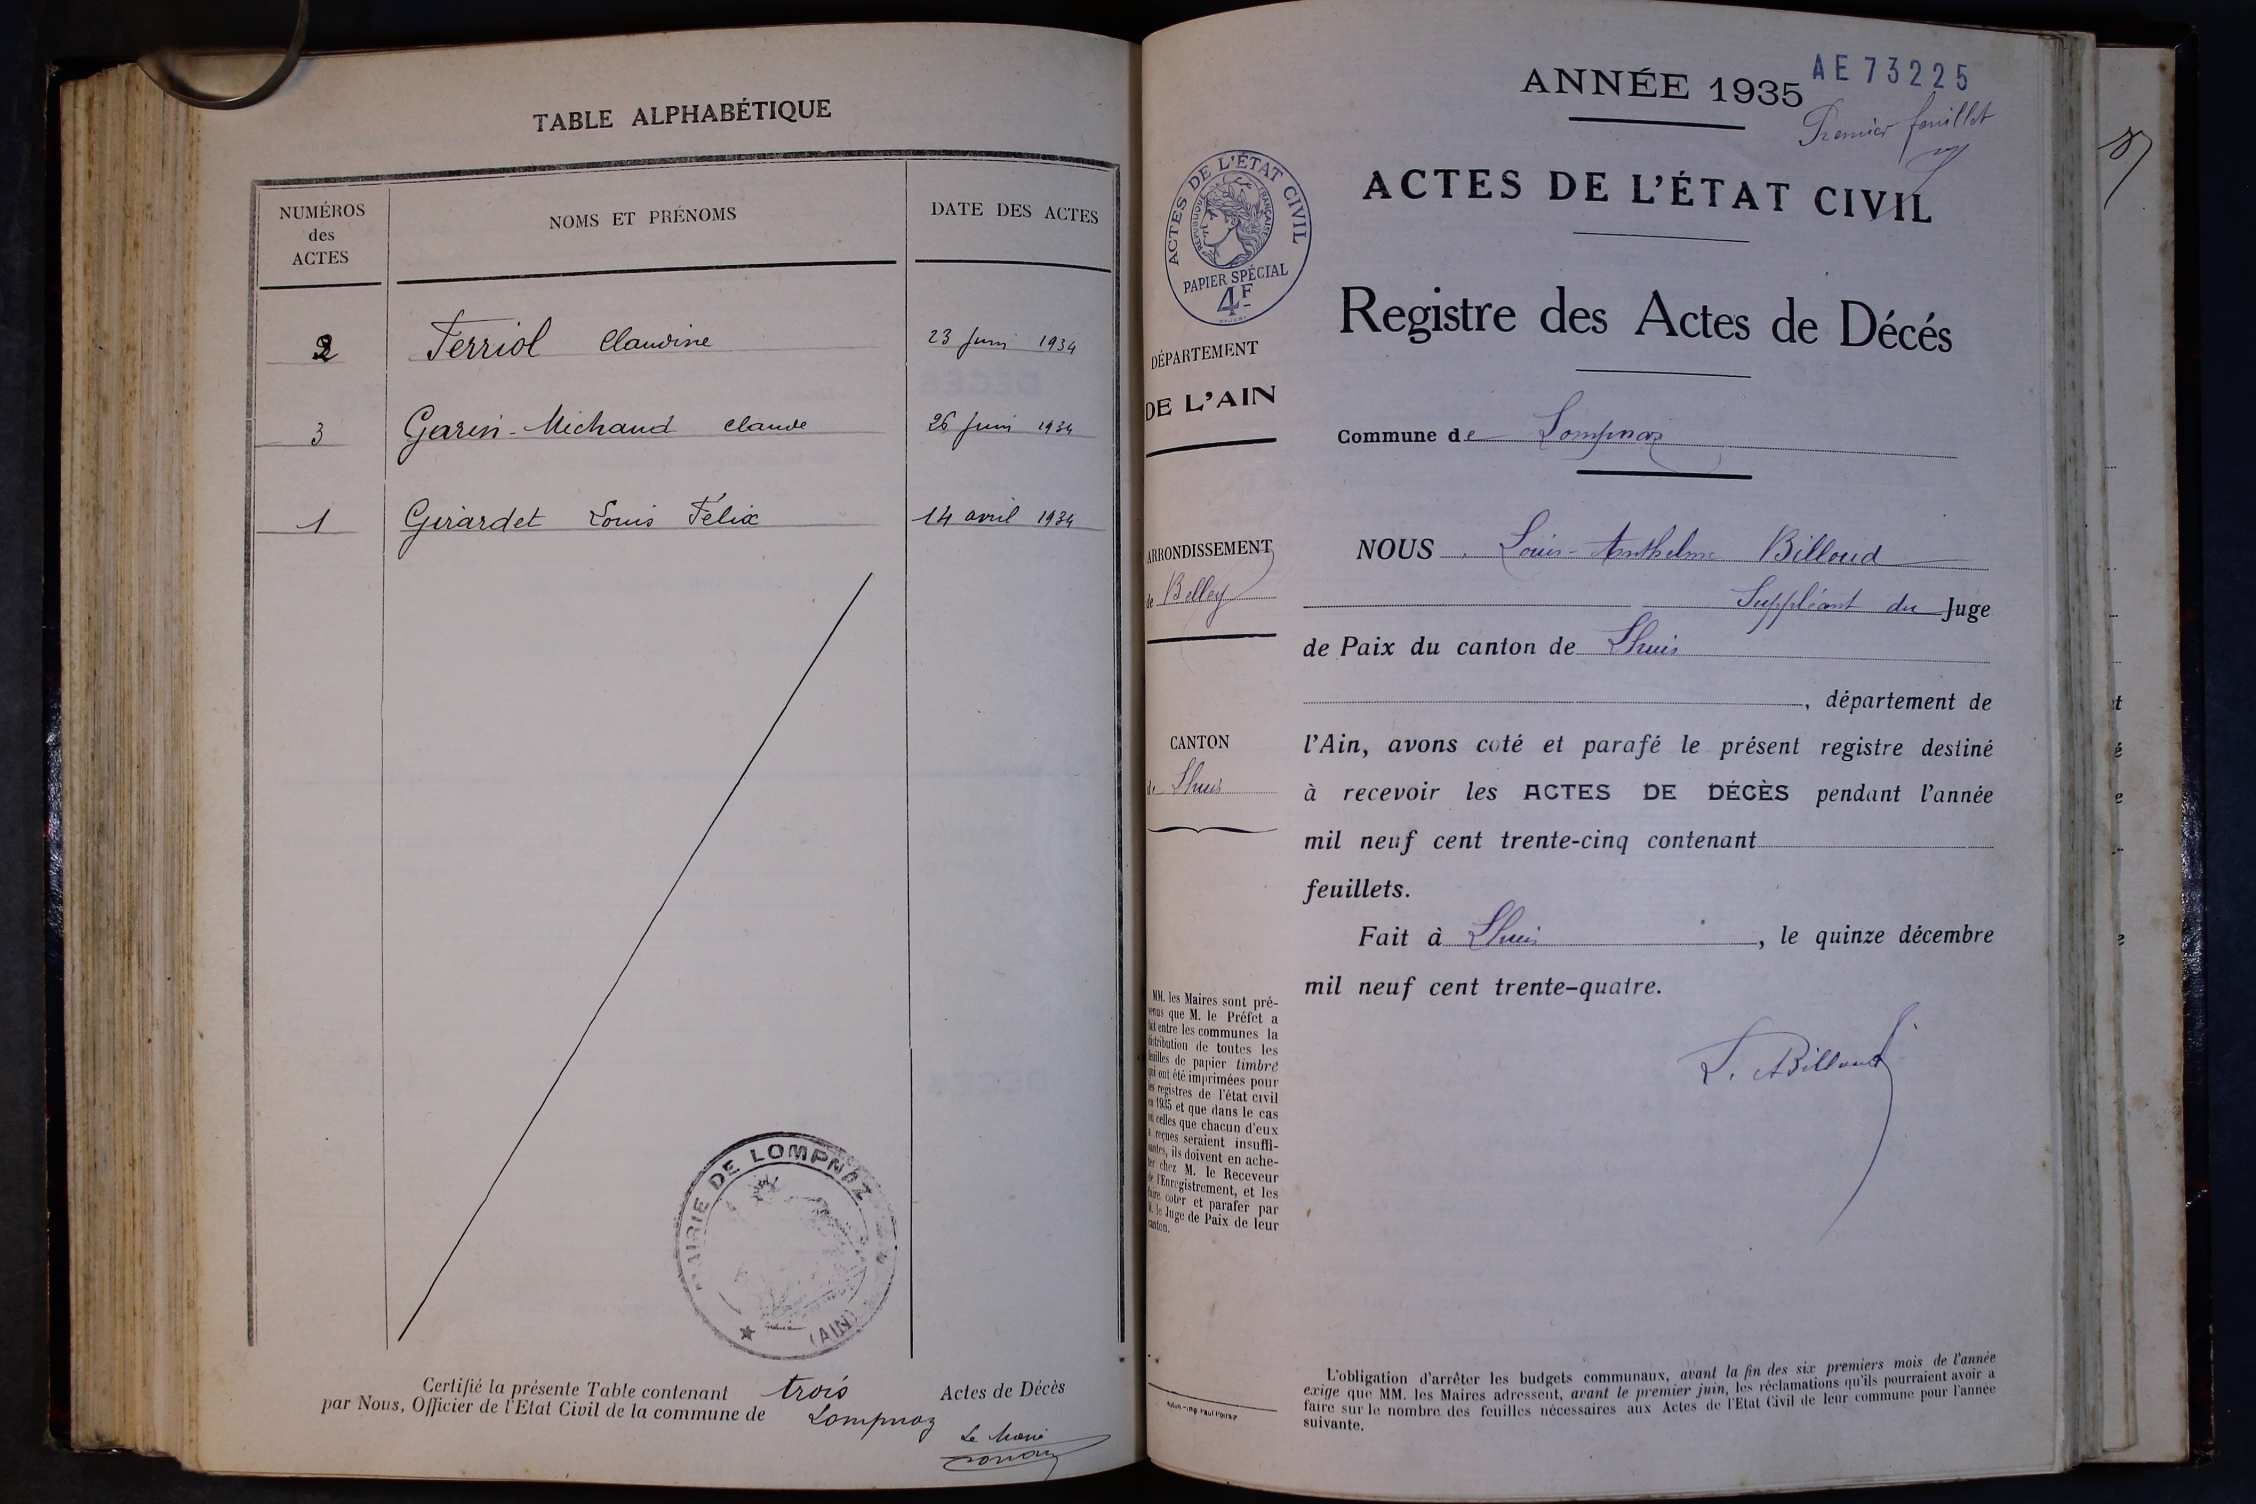 TABLE ALPHABÉTIQUE
NUMÉROS
des
ACTES
NOMS ET PRÉNOMS
DATE DES ACTES
2 Ferriol Claudine 23 Juin 1934
3 Garin-Michaud Claude 26 Juin 1934
1 Girardet Louis Félix 14 avril 1934
MAIRIE DE LOMPNAZ
(AIN)
Certifié la présente Table contenant trois Actes de Décès
par Nous, Officier de l'Etat Civil de la commune de Lompnaz
Le Maire
AE73225
ANNÉE 1935
Premier feuillet
ACTES DE L'ÉTAT CIVIL
Registre des Actes de Décés
ACTES DE L'ÉTAT CIVIL
RÉPUBLIQUE FRANÇAISE
PAPIER SPÉCIAL
4F
DÉPARTEMENT
DE L'AIN
Commune de Lompnaz
ARRONDISSEMENT
de Belley
NOUS Louis-Anthelme Billoud
Suppléant du Juge
de Paix du canton de Lhuis
, département de
CANTON
de Lhuis
l'Ain, avons coté et parafé le présent registre destiné
à recevoir les ACTES DE DÉCÈS pendant l'année
mil neuf cent trente-cinq contenant
feuillets.
Fait à Lhuis, le quinze décembre
mil neuf cent trente-quatre.
L. Billoud
MM. les Maires sont pré-
venus que M. le Préfet a
fait entre les communes la
distribution de toutes les
feuilles de papier timbré
qui ont été imprimées pour
les registres de l'état civil
en 1935 et que dans le cas
où celles que chacun d'eux
a reçues seraient insuffi-
santes, ils doivent en ache-
ter chez M. le Receveur
de l'Enregistrement, et les
faire coter et parafer par
M. le Juge de Paix de leur
canton.
L'obligation d'arrêter les budgets communaux, avant la fin des six premiers mois de l'année
exige que MM. les Maires adressent, avant le premier juin, les réclamations qu'ils pourraient avoir à
faire sur le nombre des feuilles nécessaires aux Actes de l'Etat Civil de leur commune pour l'année
suivante.